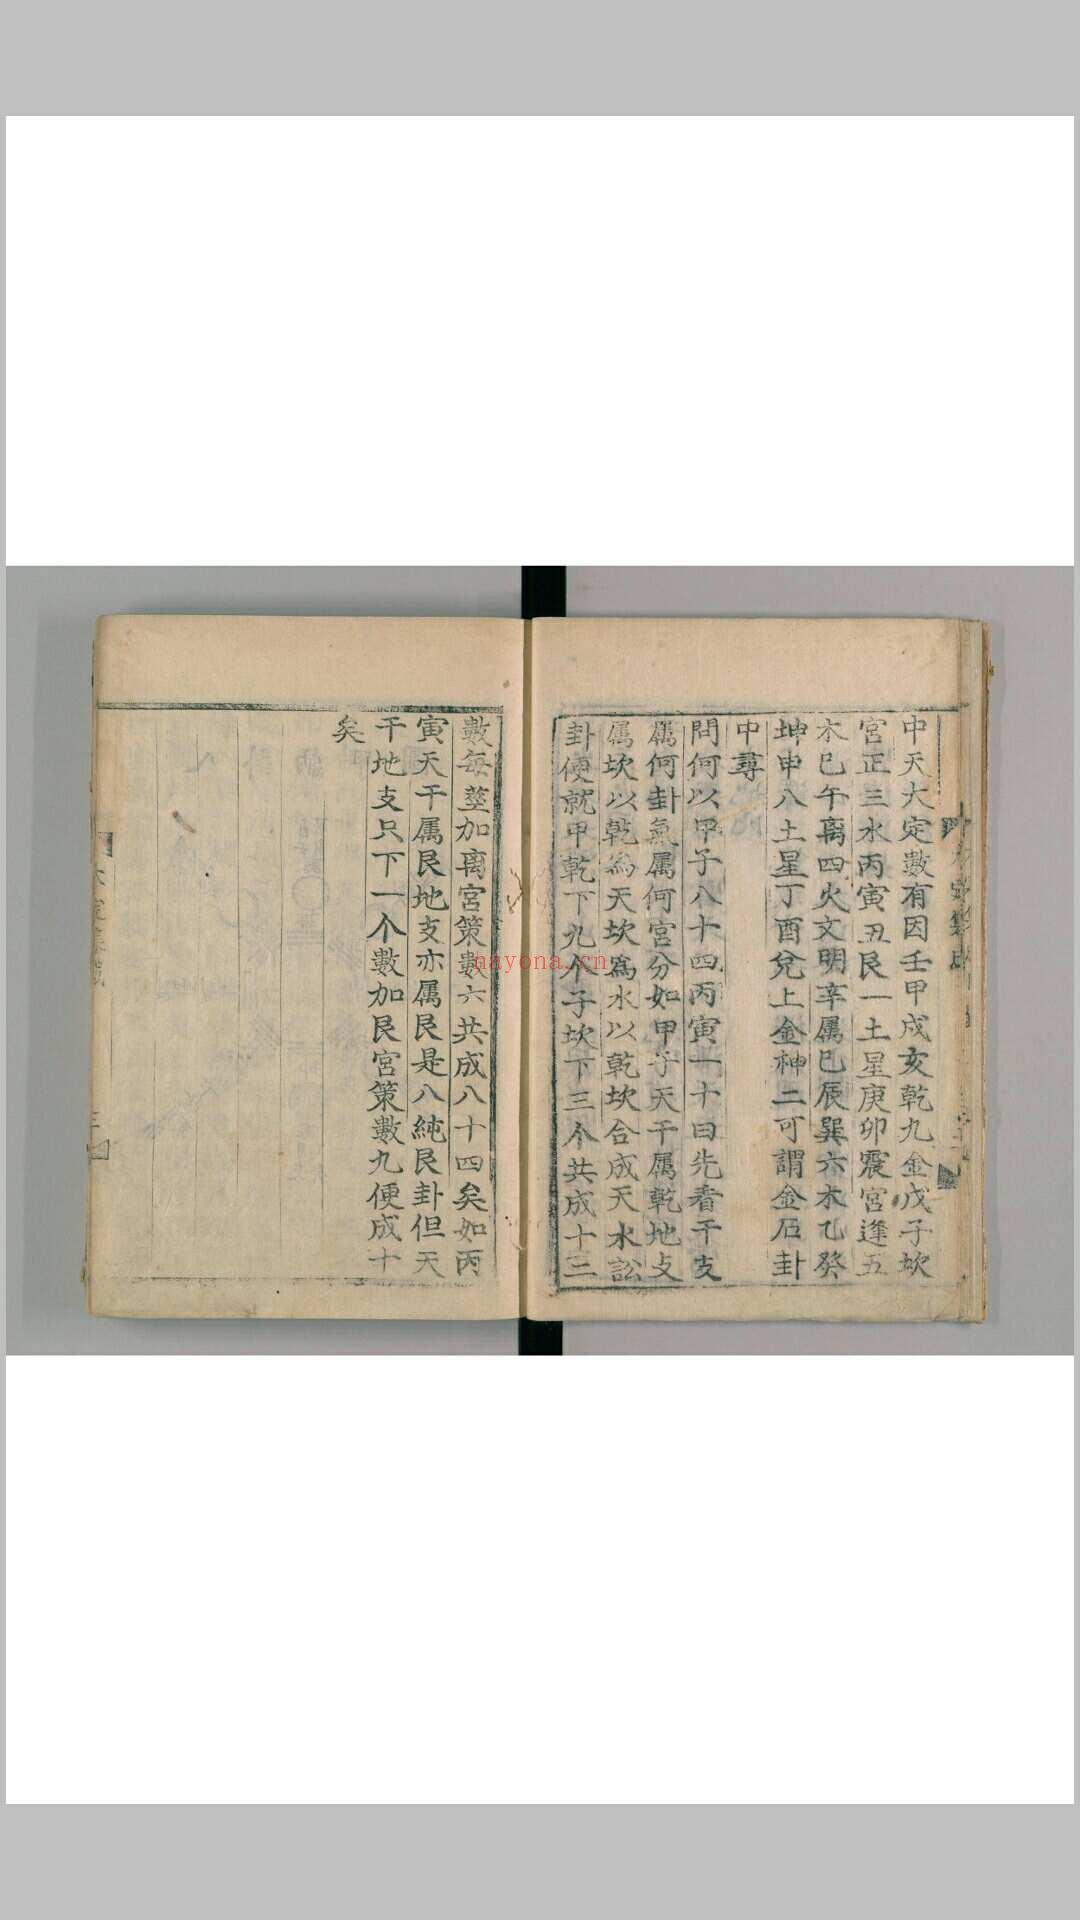 中天大定數有因壬甲戌亥乾九金戊子坎
宮正三水丙寅丑艮一土星庚卯震宮逢五
木巳午离四火文明辛属巳辰巽六木乙癸
坤申八土星丁酉兌上金神二可謂金石卦
中尋
問何以甲子八十四丙寅一十曰先看干支
属何卦氣属何宮分如甲子天干属乾地支
属坎以乾為天坎爲水以乾坎合成天水訟
卦便就甲乾下九个子坎下三个共成十三
數每莖加离宮策數六共成八十四矣如丙
寅天干属艮地支亦属艮是八純艮卦但天
干地支只下一个數加艮宮策數九便成十
矣
nayona.cn